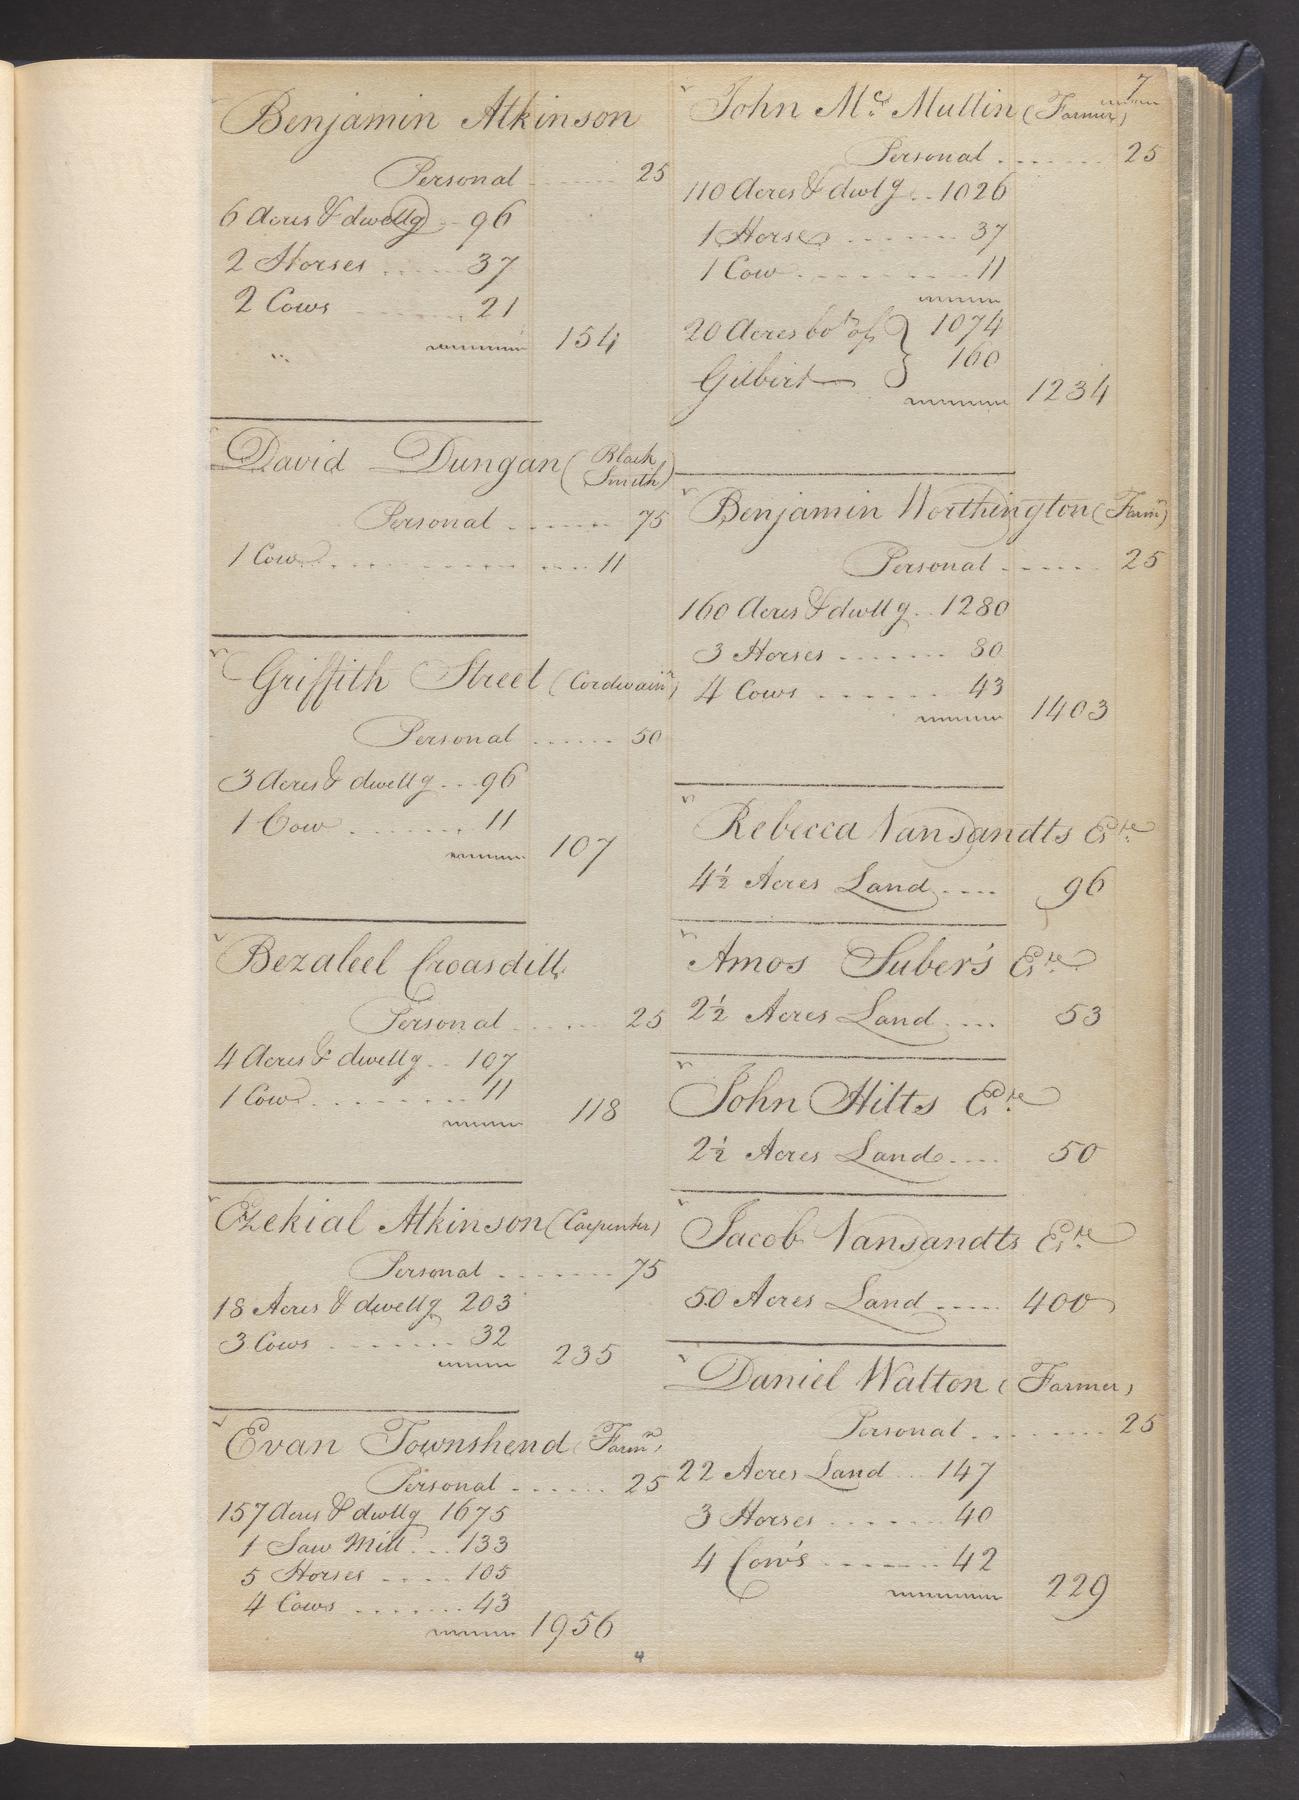 7
Benjamin Atkinson
Personal ....... 25
6 Acres & dwellg .. 96
2 Horses ..... 37
2 Cows ....... 21
154
David Dungan (Black Smith)
Personal ...... 75
1 Cow ............... 11
Griffith Street (Cordwainr)
Personal ...... 50
3 Acres & dwellg ... 96
1 Cow ....... 11
107
Bezaleel Croasdill
Personal ...... 25
4 Acres & dwellg .. 107
1 Cow ......... 11
118
Ezekial Atkinson (Carpenter)
Personal ....... 75
18 Acres & dwellg 203
3 Cows ....... 32
235
Evan Townshend (Farmr)
Personal ...... 25
157 Acres & dwllg 1675
1 Saw Mill ... 133
5 Horses .... 105
4 Cows ....... 43
1956
4
John Mc. Mullin (Farmer)
Personal ....... 25
110 Acres & dwlg .. 1026
1 Horse ....... 37
1 Cow ......... 11
20 Acres bot of } 1074
Gilbert } 160
1234
Benjamin Worthington (Farmr)
Personal ..... 25
160 Acres & dwllg .. 1280
3 Horses ....... 80
4 Cows ....... 43
1403
Rebecca Vansandts Este
4½ Acres Land .... 96
Amos Suber's Este
2½ Acres Land .... 53
John Hilts Este
2½ Acres Land .... 50
Jacob Vansandts Este
50 Acres Land ..... 400
Daniel Walton (Farmer)
Personal ........ 25
22 Acres Land ... 147
3 Horses ...... 40
4 Cow's ....... 42
229